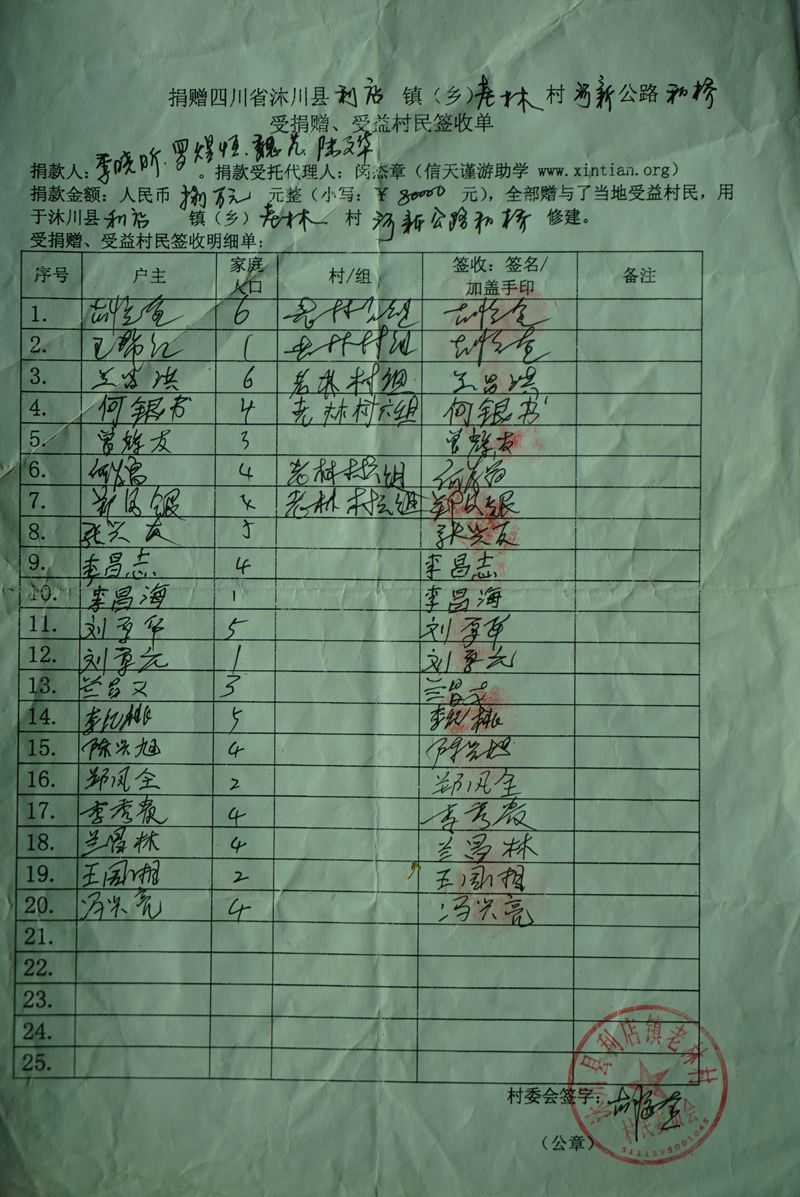 捐赠四川省沐川县利店 镇（乡）老林村河新公路和桥
受捐赠、受益村民签收单
捐款人：李晓昕.罗煜恒.魏花.陆文华。捐款受托代理人：闵添章（信天谨游助学 www.xintian.org）
捐款金额：人民币 捌万元 元整（小写：￥ 80000 元），全部赠与了当地受益村民，用
于沐川县利店 镇（乡）老林 村 河新公路和桥 修建。
受捐赠、受益村民签收明细单：
序号 户主 家庭人口 村/组 签收：签名/加盖手印 备注
1. 6
2. 1
3. 兰昌洪 6 老林村组 兰昌洪
4. 何银书 4 老林村六组 何银书
5. 曾辉友 3 曾辉友
6. 4 老林村六组
7. 郑凤银 4 老林村六组 郑凤银
8. 张兴友 5 张兴友
9. 李昌志 4 李昌志
10. 李昌海 1 李昌海
11. 刘享华 5 刘享华
12. 刘享元 1 刘享元
13. 兰昌文 3 兰昌文
14. 5
15. 陈兴旭 4 陈兴旭
16. 郑凤全 2 郑凤全
17. 李秀蓉 4
18. 兰昌林 4 兰昌林
19. 王国相 2 王国相
20. 冯兴亮 4 冯兴亮
21.
22.
23.
24.
25.
村委会签字：
（公章）
沐川县利店镇老林村
村民委员会
5111295001045